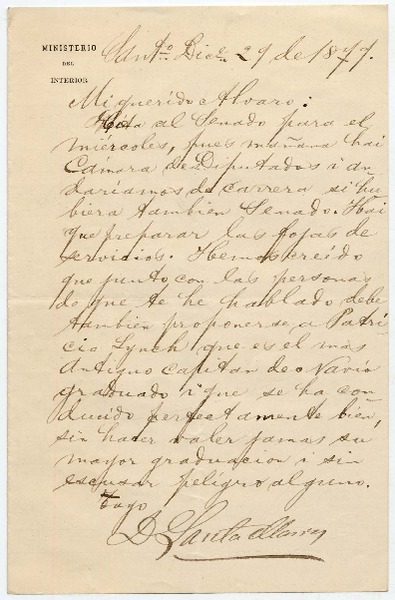 MINISTERIO
DEL
INTERIOR
Santo. Dice. 29 de 1877.
Mi querido Alvaro:
Cita al Senado para el
miércoles, pues mañana hai
Cámara de Diputados i an
daríamos de carrera si hu
biera tambien Senado. Hai
que preparar las fojas de
servicios. Hemos creído
que junto con las personas
de que te he hablado debe
tambien proponerse a Patri
cio Lynch que es el mas
antiguo capitan de Navío
graduado i que se ha con
ducido perfectamente bien,
sin hacer valer jamas su
mayor graduacion i sin
escusar peligro alguno.
Tuyo
D Santa Maria